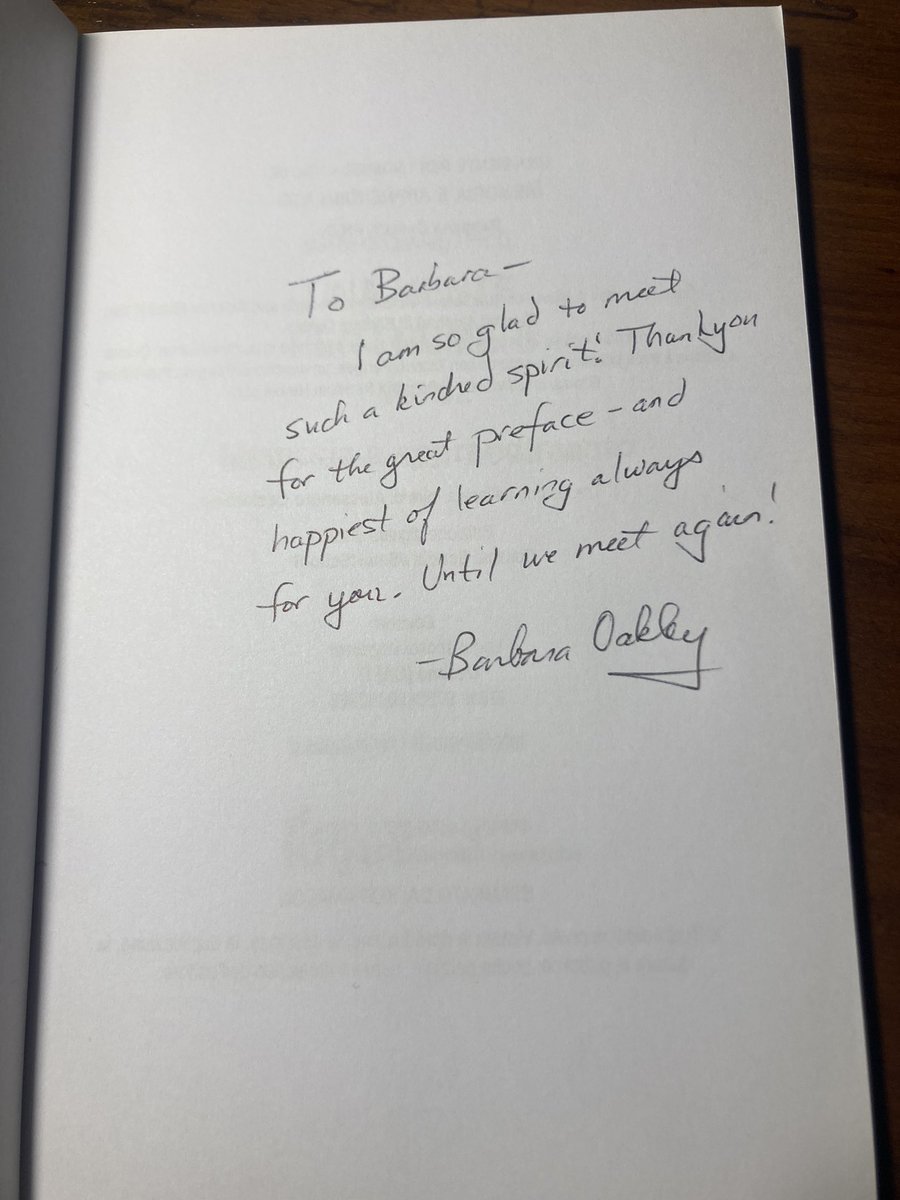 To Barbara—
I am so glad to meet
such a kindred spirit! Thank you
for the great preface – and
happiest of learning always
for you. Until we meet again!
– Barbara Oakley